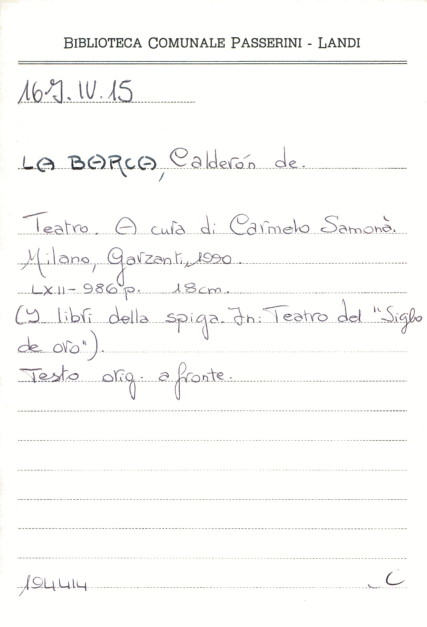 BIBLIOTECA COMUNALE PASSERINI - LANDI
16J.IV.15
LA BARCA, Calderón de.
Teatro. A cura di Carmelo Samonà.
Milano, Garzanti, 1990.
LXII-986 p. 18 cm.
(I libri della spiga. In: Teatro del "Siglo
de oro").
Testo orig. a fronte.
194414 C